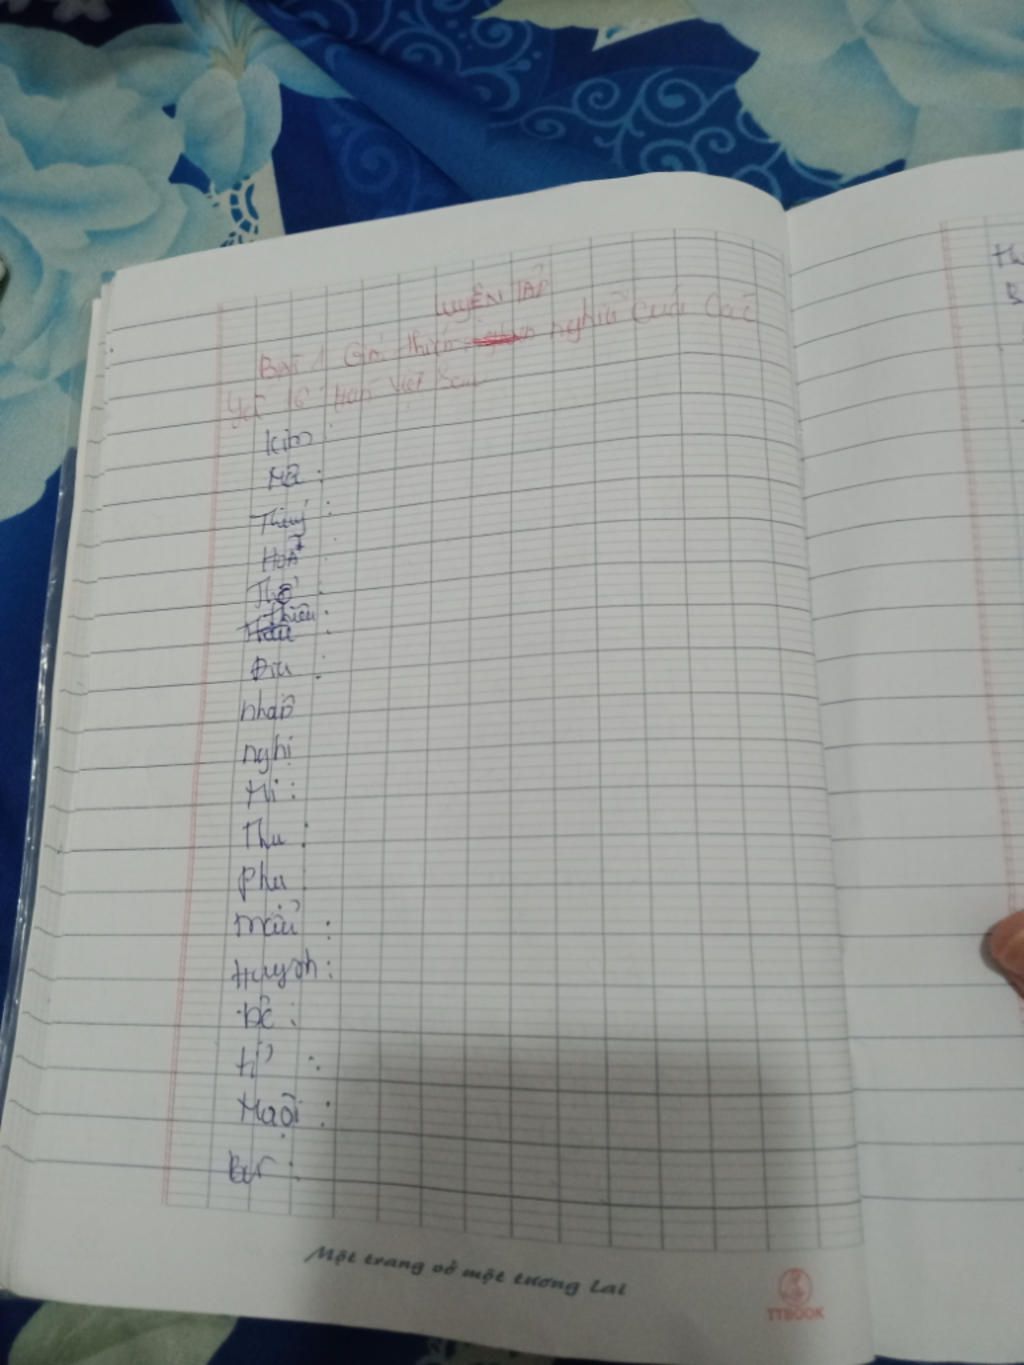 LUYỆN TẬP
Bài 1 Giải thích nghĩa của các
yếu tố Hán Việt sau
Kim
Mã :
Thuỷ :
Hoả :
Thổ :
Thiên :
Địa :
nhân
nghị
Mi :
Thu :
phụ
mẫu :
Huynh :
Đệ :
tỉ :
Muội :
Một trang vở một tương lai
TTBOOK
th
B